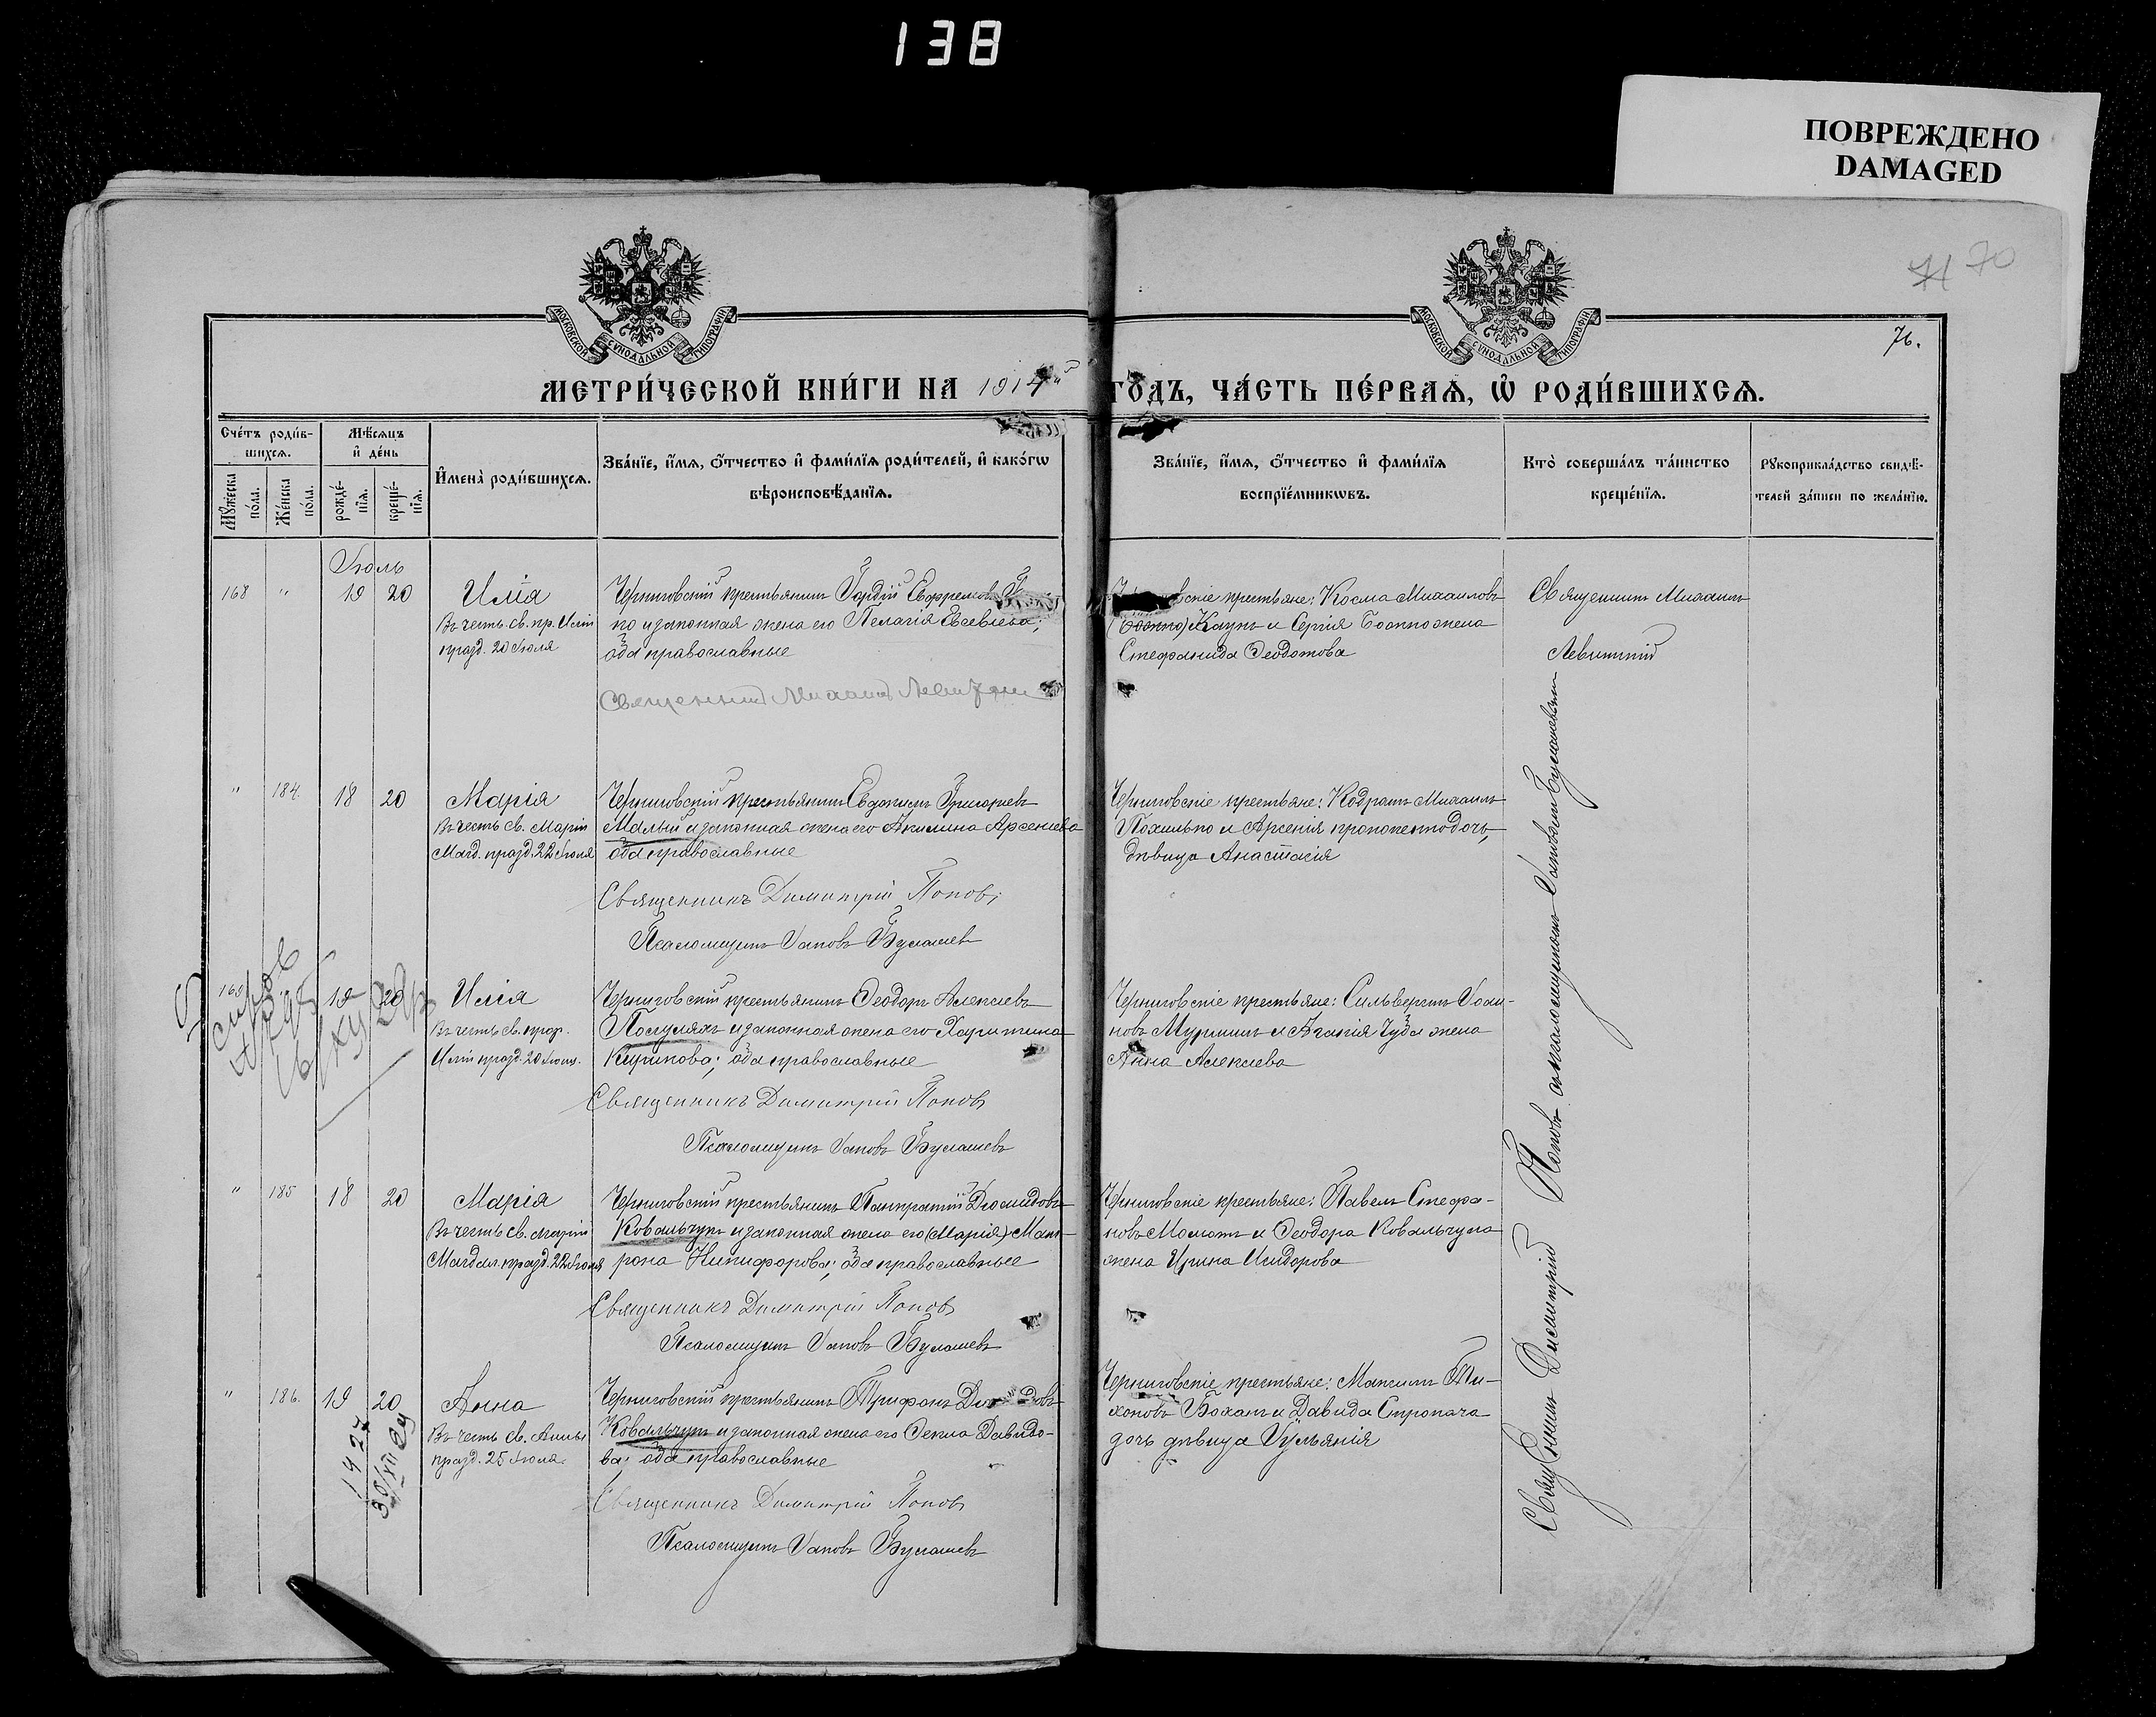 138
ПОВРЕЖДЕНО
DAMAGED
71 70
76.
МОСКОВСКОЙ СѴНОДАЛЬНОЙ ТИПОГРАФІИ
МОСКОВСКОЙ СѴНОДАЛЬНОЙ ТИПОГРАФІИ
МЕТРИ́ЧЕСКОЙ КНИ́ГИ НА 1914й ГО́ДЪ, ЧА́СТЬ ПЕ́РВАѦ, Ѽ РОДИ́ВШИХСѦ.
Сче́тъ роди́в-
шихсѧ.
Мꙋ́жеска по́ла.
Же́нска по́ла.
Мѣ́сѧцъ
и҆ де́нь
рожде́-
нїѧ.
креще́-
нїѧ.
И҆мена̀ роди́вшихсѧ.
Зва́нїе, и҆́мѧ, ѻ҆́тчество и҆ фами́лїѧ роди́телей, и҆ како́гѡ
вѣроисповѣ́данїѧ.
Зва́нїе, и҆́мѧ, ѻ҆́тчество и҆ фами́лїѧ
воспрїе́мникѡвъ.
Кто̀ соверша́лъ та́инство
креще́нїѧ.
Рꙋкоприкла́дство свидѣ́-
телей за́писи по жела́нїю.
Іюль
168 " 19 20 Илія
Въ честь св. пр. Иліи
празд. 20 Іюля
Черниговскій крестьянинъ Гордій Евфремовъ
ко и законная жена его Пелагія Евсевіева;
оба православные
Священник Михаил Левитский
крестьяне: Косма Михаиловъ
Каунъ и Сергія Бояпко жена
Стефанида Ѳеодотова
Священникъ Михаилъ
Левитскій
" 184. 18 20 Марія
Въ честь св. Маріи
Магд. празд. 22 Іюля
Черниговскій крестьянинъ Евдокимъ Григорьевъ
Малый и законная жена его Акилина Арсеніева
оба православные
Священникъ Димитрій Поповъ
Псаломщикъ Іаковъ Булашевъ
Черниговскіе крестьяне: Кодратъ Михаилъ
Похилько и Арсенія Прокопенко дочь,
дѣвица Анастасія
169 19 20 Илія
Въ честь св. прор.
Иліи празд. 20 Іюля.
Черниговскій крестьянинъ Ѳеодоръ Алексіевъ
Послуляхъ и законная жена его Харитина
Кирикова; оба православные
Священникъ Димитрій Поповъ
Псаломщикъ Іаковъ Булашевъ
Черниговскіе крестьяне: Сильвестъ Іоан-
новъ Мурзинъ и Агапія Чуба жена
Анна Алексіева
" 185 18 20 Марія
Въ честь св. Маріи
Магдал. празд. 22 Іюля
Черниговскій крестьянинъ Панкратій Діомидовъ
Ковальчукъ и законная жена его (Марія) Мат-
рона Никифорова; оба православные
Священникъ Димитрій Поповъ
Псаломщикъ Іаковъ Булашевъ
Черниговскіе крестьяне: Павелъ Стефа-
новъ Момотъ и Ѳеодора Ковальчука
жена Ирина Исидорова
" 186. 19 20 Анна
Въ честь св. Анны
празд. 25 Іюля.
1927
30/XII
Черниговскій крестьянинъ Трифонъ
Ковальчукъ и законная жена его Ѳекла Давидо-
ва; оба православные
Священникъ Димитрій Поповъ
Псаломщикъ Іаковъ Булашевъ
Черниговскіе крестьяне: Максимъ Ти-
хоновъ Боханъ и Давида Стропача
дочь дѣвица Іуліанія
Священникъ Димитрій Поповъ съ псаломщикомъ Іаковомъ Булашевымъ